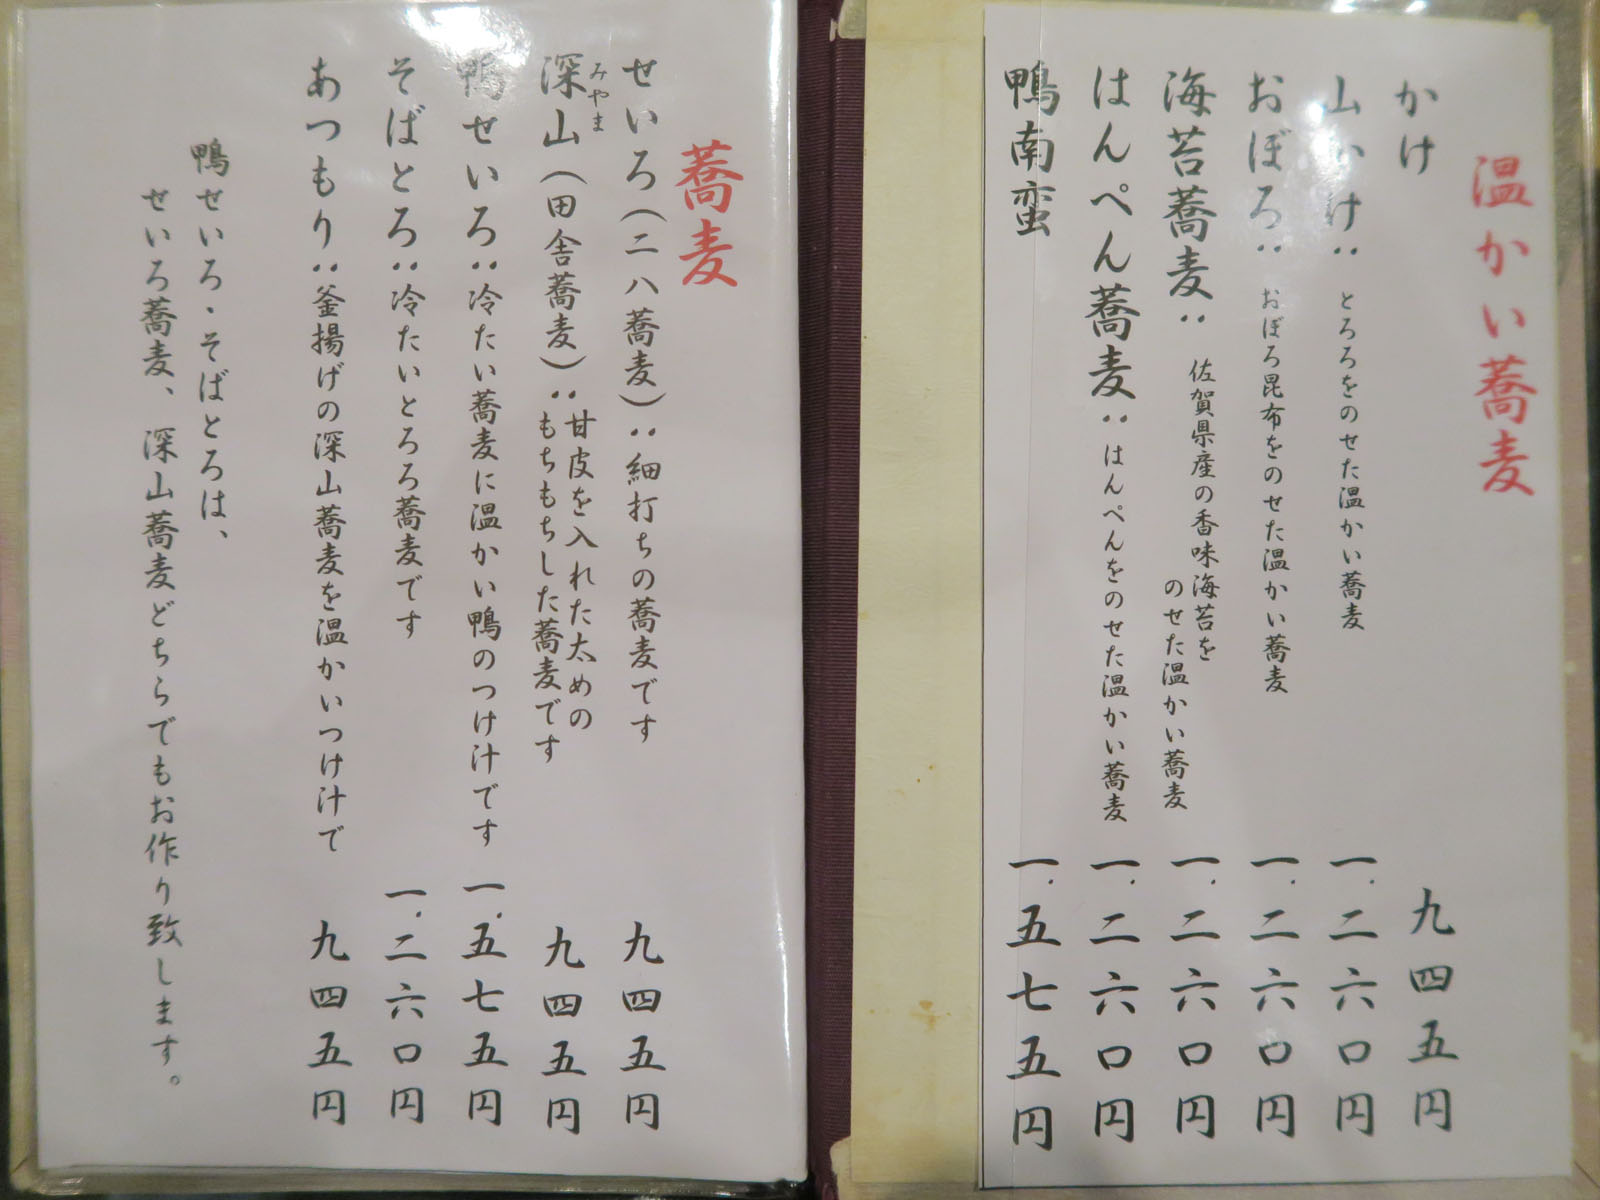 温かい蕎麦
かけ 九四五円
山かけ：とろろをのせた温かい蕎麦 一.二六〇円
おぼろ：おぼろ昆布をのせた温かい蕎麦 一.二六〇円
海苔蕎麦：佐賀県産の香味海苔を
のせた温かい蕎麦 一.二六〇円
はんぺん蕎麦：はんぺんをのせた温かい蕎麦 一.二六〇円
鴨南蛮 一.五七五円
蕎麦
せいろ（二八蕎麦）：細打ちの蕎麦です 九四五円
みやま
深山（田舎蕎麦）：甘皮を入れた太めの
もちもちした蕎麦です 九四五円
鴨せいろ：冷たい蕎麦に温かい鴨のつけ汁です 一.五七五円
そばとろ：冷たいとろろ蕎麦です 一.二六〇円
あつもり：釜揚げの深山蕎麦を温かいつけ汁で 九四五円
鴨せいろ・そばとろは、
せいろ蕎麦、深山蕎麦どちらでもお作り致します。